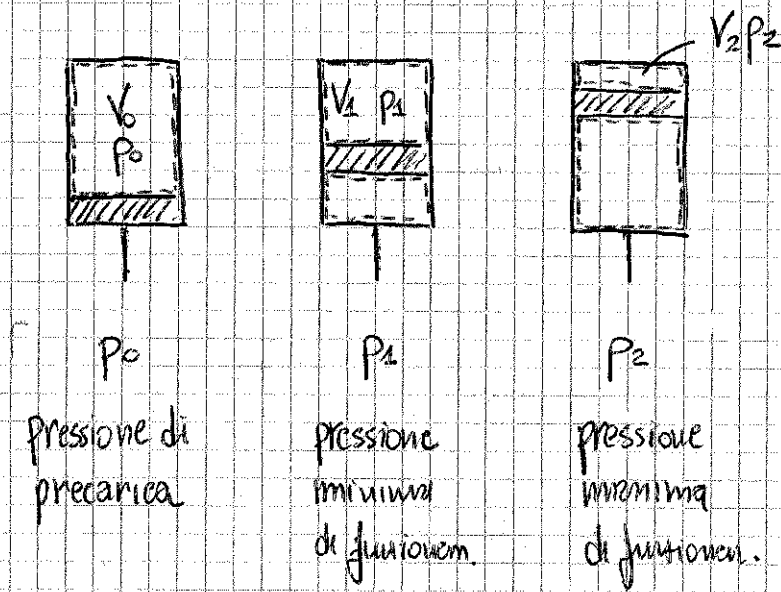 V₂ p₂
V₀
p₀
V₁ p₁
p₀
p₁
p₂
pressione di
precarica
pressione
minima
di funzionam.
pressione
massima
di funzionam.